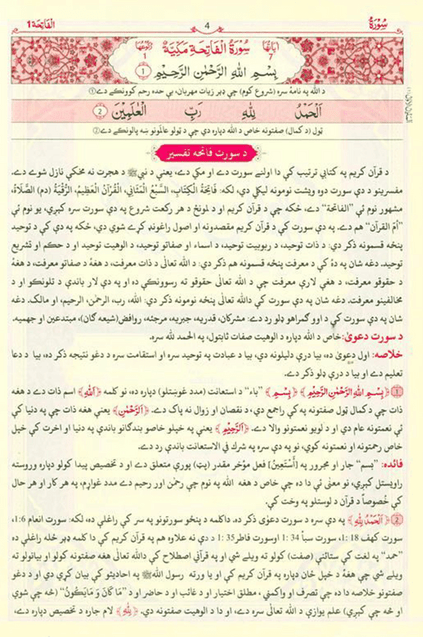 سُوْرَةٌ
4
اَلْفَاتِحَة 1
اٰیَاتُهَا 7
سُوْرَةُ الْفَاتِحَةِ مَكِّيَّةٌ
رُکُوْعُهَا 1
بِسْمِ اللّٰهِ الرَّحْمٰنِ الرَّحِيْمِ ①
د الله په نامه سره (شروع کوم) چې ډیر زیات مهربان، بې حده رحم کوونکے دے①
اَلْحَمْدُ لِلّٰهِ رَبِّ الْعٰلَمِيْنَ ②
ټول (د کمال) صفتونه خاص د الله دپاره دي چې د ټولو عالمونو ښه پالونکے دے②
د سورت فاتحه تفسیر
د قرآن کریم په کتابي ترتیب کې دا اولنے سورت دے او مکي دے، یعني د نبي ﷺ د هجرت نه مخکې نازل شوے دے.
مفسرینو د دې سورت ډېر ویشت نومونه لیکلي دي، لکه: فَاتِحَةُ الْكِتَابِ، السَّبْعُ الْمَثَانِي، الْقُرْآنُ الْعَظِيْمُ، الرُّقْيَةُ (دم) الصَّلَاةُ،
مشهور نوم ئې "الفاتحة" دے، ځکه چې د قرآن کریم او د لمونځ د هر رکعت شروع په دې سورت سره کیږي، یو نوم ئې
"اُمُّ القرآن" هم دے. په دې سورت کې د قرآن کریم مقصدونه او اصول راغونډ کړے شوي دي، ځکه په دې کې د توحید
پنځه قسمونه ذکر دي: د ذات توحید، د ربوبیت توحید، د اسماء او صفاتو توحید، د الوهیت توحید او د حکم او تشریع
توحید. دغه شان په دۀ کې د معرفت پنځه قسمونه هم ذکر دي: د الله تعالٰی د ذات معرفت، د هغۀ د صفاتو معرفت، د هغۀ
د حقوقو معرفت، د هغې لارې معرفت چې د الله تعالٰی حقوقو ته رسوونکې ده او په دې لار باندې د تلونکو او د
مخالفینو معرفت. دغه شان په دې سورت کې د الله تعالٰی پنځه نومونه ذکر دي: الله، رب، الرحمٰن، الرحیم، او مالک. دغه
شان په دې سورت کې د اوو ګمراهو ډلو رد دے: مشرکان، قدریه، جبریه، مرجئه، روافض (شیعه ګان)، مبتدعین او جهمیه.
د سورت دعوٰی: خاص د الله دپاره د الوهیت صفات ثابتول، په الحمد لله سره.
خلاصه: اول دعوٰی ده، بیا درې دلیلونه دي، بیا د عبادت په توحید سره او استقامت سره د دغو نتیجه ذکر ده، بیا د دعا
تعلیم دے او بیا د درې ډلو ذکر دے.
① ﴿بِسْمِ اللّٰهِ الرَّحْمٰنِ الرَّحِيْمِ﴾ ﴿بِسْمِ﴾ "باء" د استعانت (مدد غوښتلو) دپاره ده، نو کلمه ﴿اللّٰهِ﴾ اسم ذات دے د هغه
ذات چې د کمال ټول صفتونه په کې راجمع دي، د نقصان او زوال نه پاک دے. ﴿الرَّحْمٰنِ﴾ یعني هغه ذات چې په دنیا کې
ئې نعمتونه عام دي او د لویو نعمتونو والا دے. ﴿الرَّحِيْمِ﴾ یعني په خپلو خاصو بندګانو باندې په دنیا او آخرت کې خپل
خاص رحمتونه او نعمتونه کوي، نو په دې سره په شرک في الاستعانت باندې رد دے.
فائده: "بسم" جار او مجرور په [أَسْتَعِيْنُ] فعل مؤخر مقدر (پټ) پورې متعلق دے او د تخصیص پیدا کولو دپاره وروسته
راویستل کیږي، نو معنٰی ئې دا ده چې خاص د هغه الله په نوم چې رحمٰن او رحیم دے مدد غواړم، په هر کار او هر حال
کې خصوصاً د قرآن د لوستلو په وخت کې.
② ﴿اَلْحَمْدُ لِلّٰهِ﴾ په دې سره د سورت دعوٰی ذکر ده، داکلمه د پنځو سورتونو په سر کې راغلې ده، لکه: سورت انعام 1:6،
سورت کهف 1:18، سورت سبأ 1:34 اوسورت فاطر 1:35 د دې نه علاوه هم په قرآن کریم کې دا کلمه ډېر ځله راغلې ده
"حمد" په لغت کې ستائنې (صفت) کولو ته ویلے شي او په قرآني اصطلاح کې دالله تعالٰی هغه صفتونه کولو او بیانولو ته
ویلے شي چې هغۀ د خپل ځان دپاره په قرآن کریم کې او یا ورته رسول الله ﷺ په احادیثو کې بیان کړي دي او د دغو
صفتونو خلاصه دا ده چې تصرف او واکمني، مطلق اختیار او د غائب او د حاضر او د "مَا كَانَ وَ مَا يَكُوْنُ" (څه چې شوي
او څه چې کیږي) علم یوازې د الله تعالٰی سره دے، او دا د الوهیت صفتونه دي. ﴿لِلّٰهِ﴾ لام جاره د تخصیص دپاره دے،